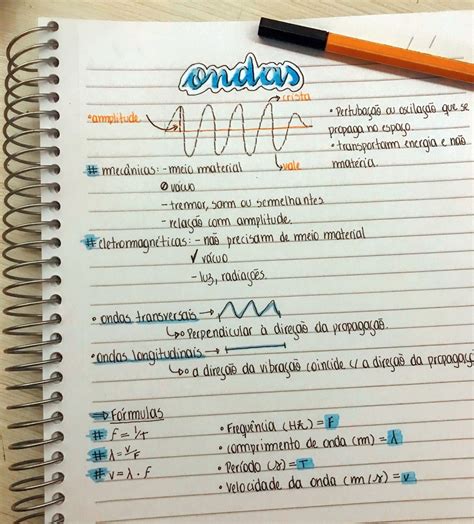 ondas
crista
amplitude
vale
• Pertubação ou oscilação que se
propaga no espaço.
• transportam energia e não
matéria.
# mecânicas: - meio material
⊘ vácuo
- tremor, som ou semelhantes
- relação com amplitude.
# eletromagnéticas: - não precisam de meio material
✓ vácuo
- luz, radiações.
• ondas transversais →
↳ Perpendicular à direção da propagação.
• ondas longitudinais →
↳ a direção da vibração coincide c/ a direção da propagaçã
⇒ Fórmulas
# f = 1/T
# λ = v/F
# v = λ . f
• Frequência (Hz) = F
• comprimento de onda (m) = λ
• Período (s) = T
• velocidade da onda (m/s) = v